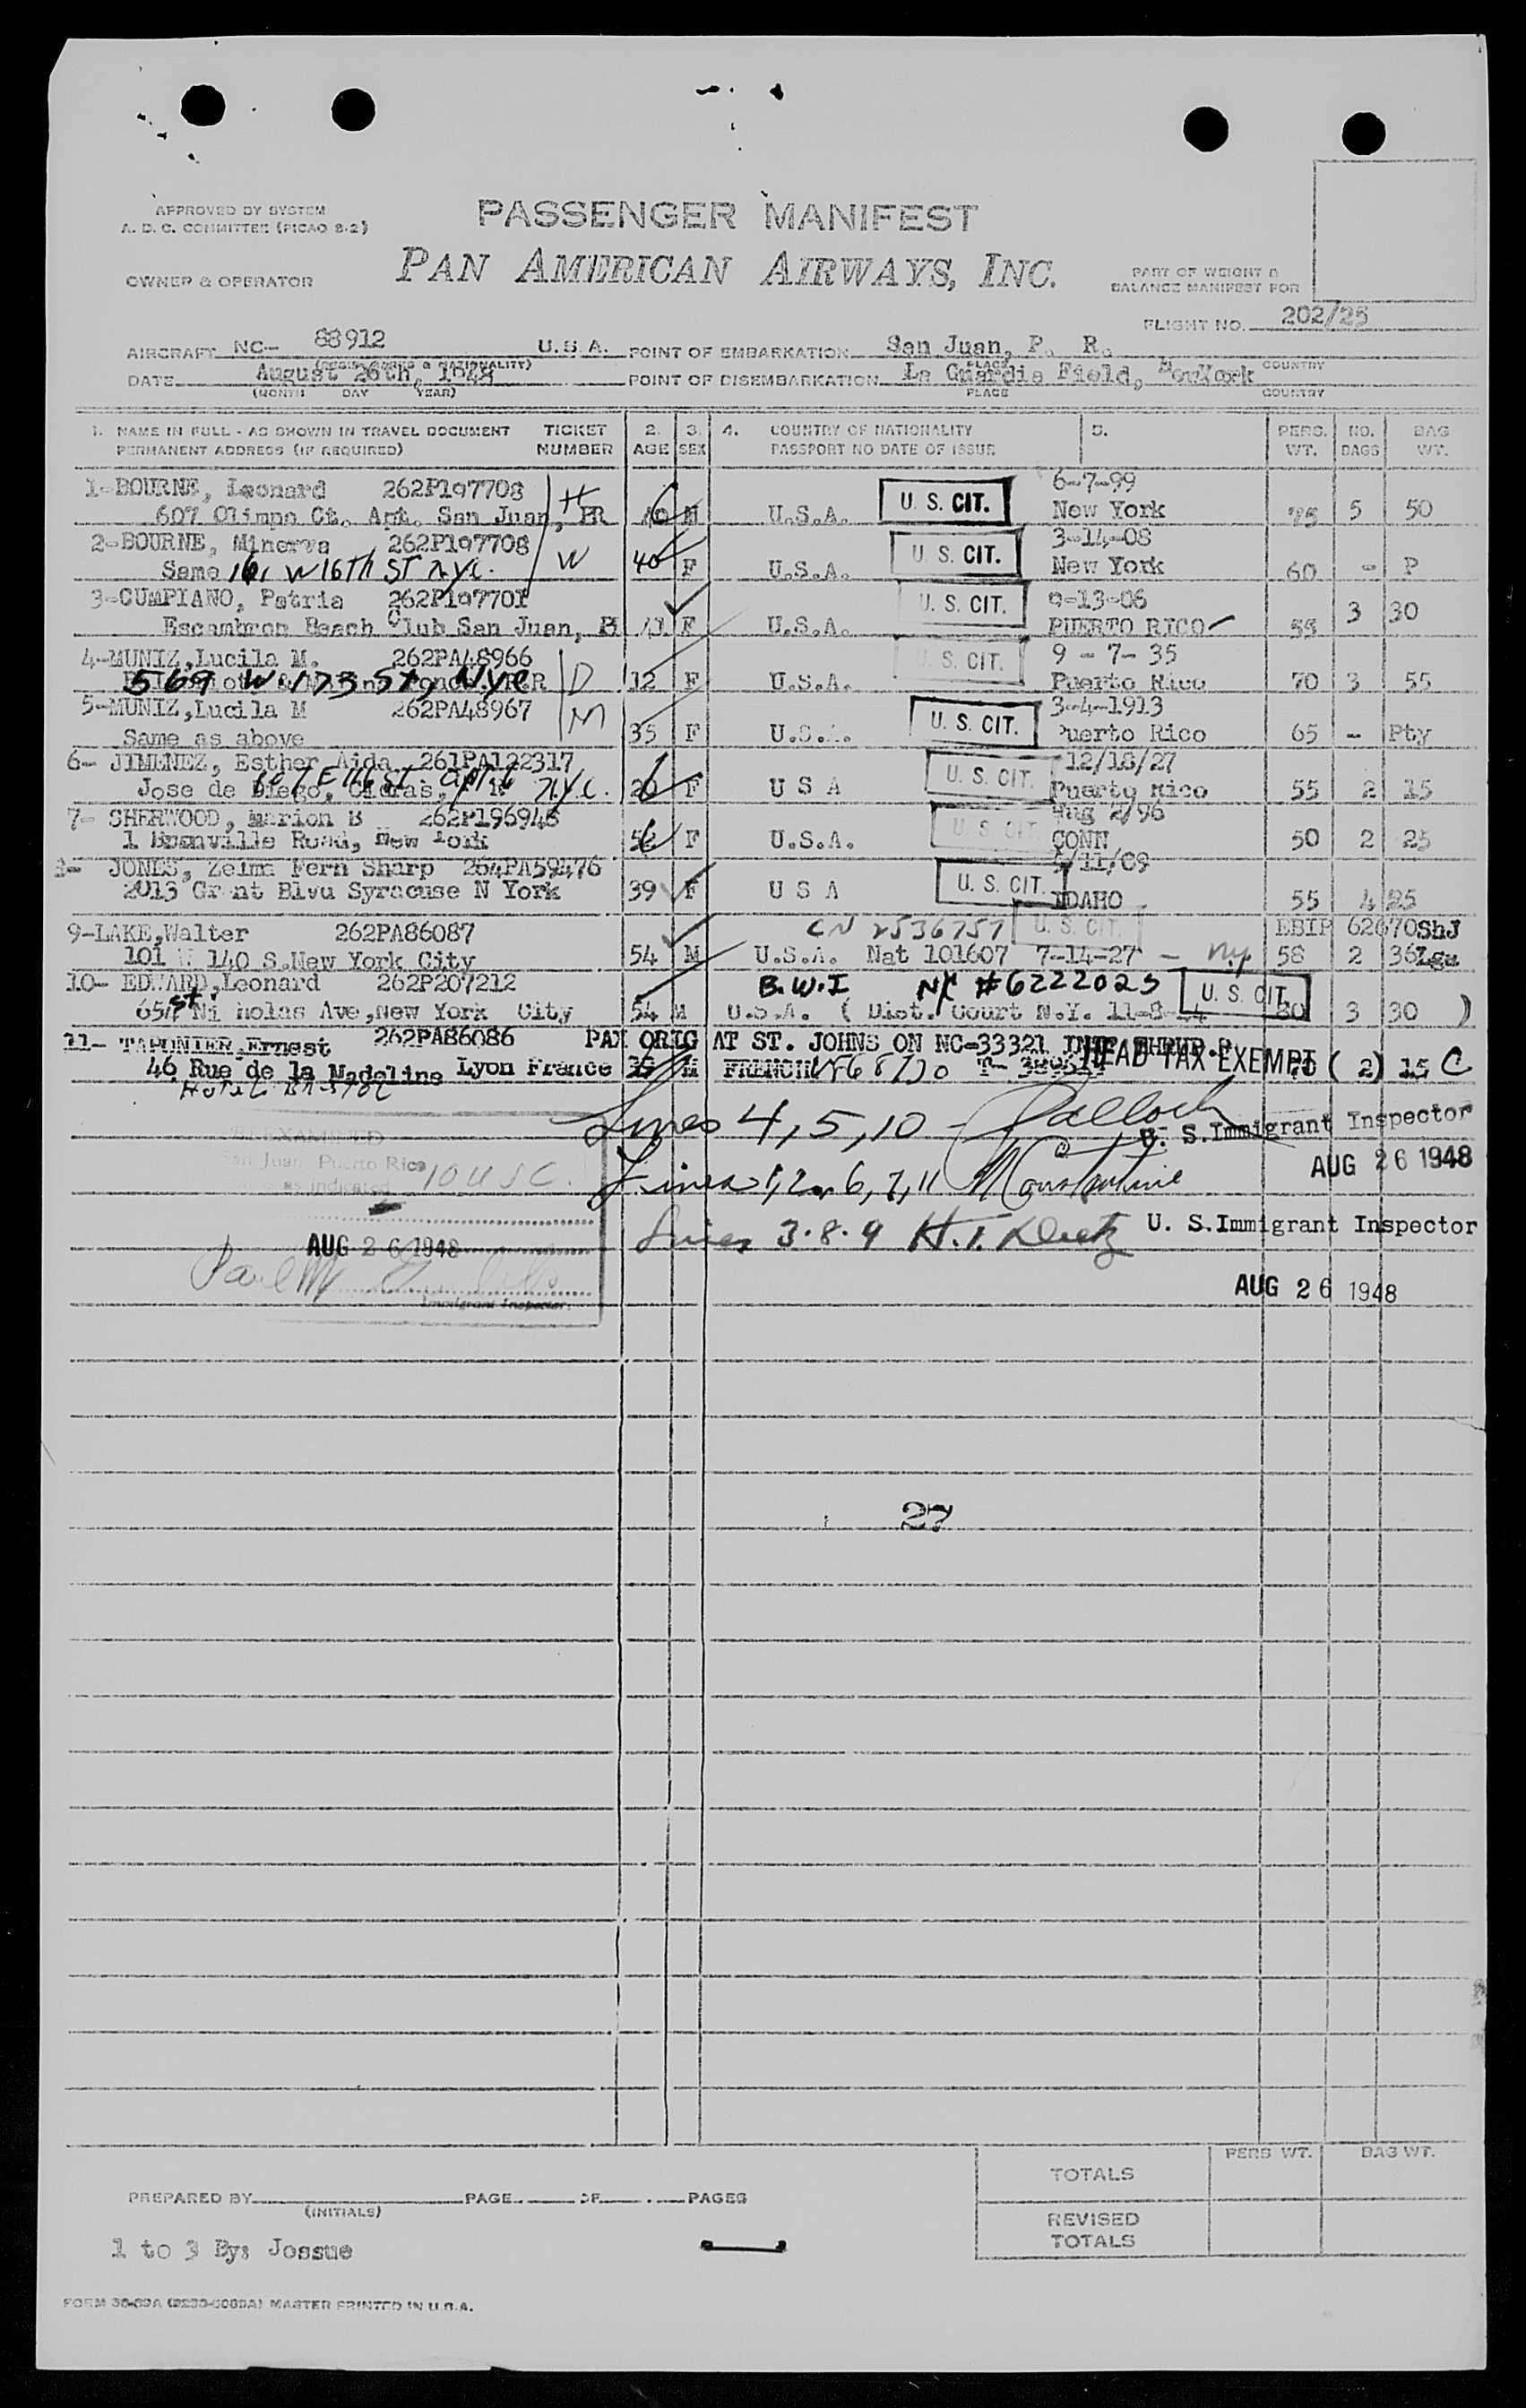 APPROVED BY SYSTEM
A. D. C. COMMITTEE (PICAO 8-2)
PASSENGER MANIFEST
OWNER & OPERATOR
PAN AMERICAN AIRWAYS, INC.
PART OF WEIGHT &
BALANCE MANIFEST FOR
FLIGHT NO. 202/25
AIRCRAFT NC- 88912 U.S.A. POINT OF EMBARKATION San Juan, P. R.
DATE August 26th, 1948 POINT OF DISEMBARKATION La Guardia Field, NewYork
(MONTH DAY YEAR) PLACE COUNTRY
1. NAME IN FULL - AS SHOWN IN TRAVEL DOCUMENT TICKET 2. 3. 4. COUNTRY OF NATIONALITY 5. PERS. NO. BAG
PERMANENT ADDRESS (IF REQUIRED) NUMBER AGE SEX PASSPORT NO DATE OF ISSUE WT. BAGS WT.
1-BOURNE, Leonard 262P197708 H 6-7-99
607 Olimpo Ct. Apt. San Juan, PR M U.S.A. U. S. CIT. New York 75 5 50
2-BOURNE, Minerva 262P197708 W 3-14-08
Same 161 W 16th ST NYC. 40 F U.S.A. U. S. CIT. New York 60 - P
3-CUMPIANO, Patria 262P197701 9-13-06
Escambron Beach Club San Juan, F U.S.A. U. S. CIT. PUERTO RICO 55 3 30
4-MUNIZ,Lucila M. 262PA48966 9 - 7- 35
569 W 173 St, NYC D 12 F U.S.A. U. S. CIT. Puerto Rico 70 3 55
5-MUNIZ,Lucila M 262PA48967 M 3-4-1913
Same as above 35 F U.S.A. U. S. CIT. Puerto Rico 65 - Pty
6- JIMENEZ, Esther Aida 261PA122317 12/18/27
Jose de Diego, Cidras, N.Y.C. 20 F U S A U. S. CIT. Puerto Rico 55 2 15
7- SHERWOOD, Marion B 262P196948 Aug 2/96
1 Road, New York 52 F U.S.A. U. S. CIT. CONN 50 2 25
8- JONES, Zelma Fern Sharp 264PA59476 /11/09
2013 Grant Blvd Syracuse N York 39 F U S A U. S. CIT. IDAHO 55 4 25
9-LAKE,Walter 262PA86087 CN 2536757 U. S. CIT. EBIP 62670ShJ
101 W 140 S.New York City 54 M U.S.A. Nat 101607 7-14-27 - NY 58 2 36Lgu
10- EDWARD,Leonard 262P207212 B.W.I NC #6222023 U. S. CIT.
654 St Ni holas Ave,New York City 54 M U.S.A. ( Dist. Court N.Y. 11-8- 80 3 30 )
11- TAPONIER,Ernest 262PA86086 PAX ORIG AT ST. JOHNS ON NC-33321
46 Rue de la Madeline Lyon France M FRENCH HEAD TAX EXEMPT ( 2) 15 C
Hotel Bristol
Lines 4, 5, 10
U. S.Immigrant Inspector
San Juan, Puerto Rico
as indicated 10 USC.
AUG 26 1948
Lines 1, 2, 6, 7, 11 M Constantine
Lines 3.8.9 H.T. U. S.Immigrant Inspector
AUG 26 1948
Paul M
Immigrant Inspector.
AUG 26 1948
27
PERS WT. BAG WT.
TOTALS
PREPARED BY PAGE OF PAGES
(INITIALS)
REVISED
TOTALS
1 to 3 By: Jossue
MASTER PRINTED IN U.S.A.